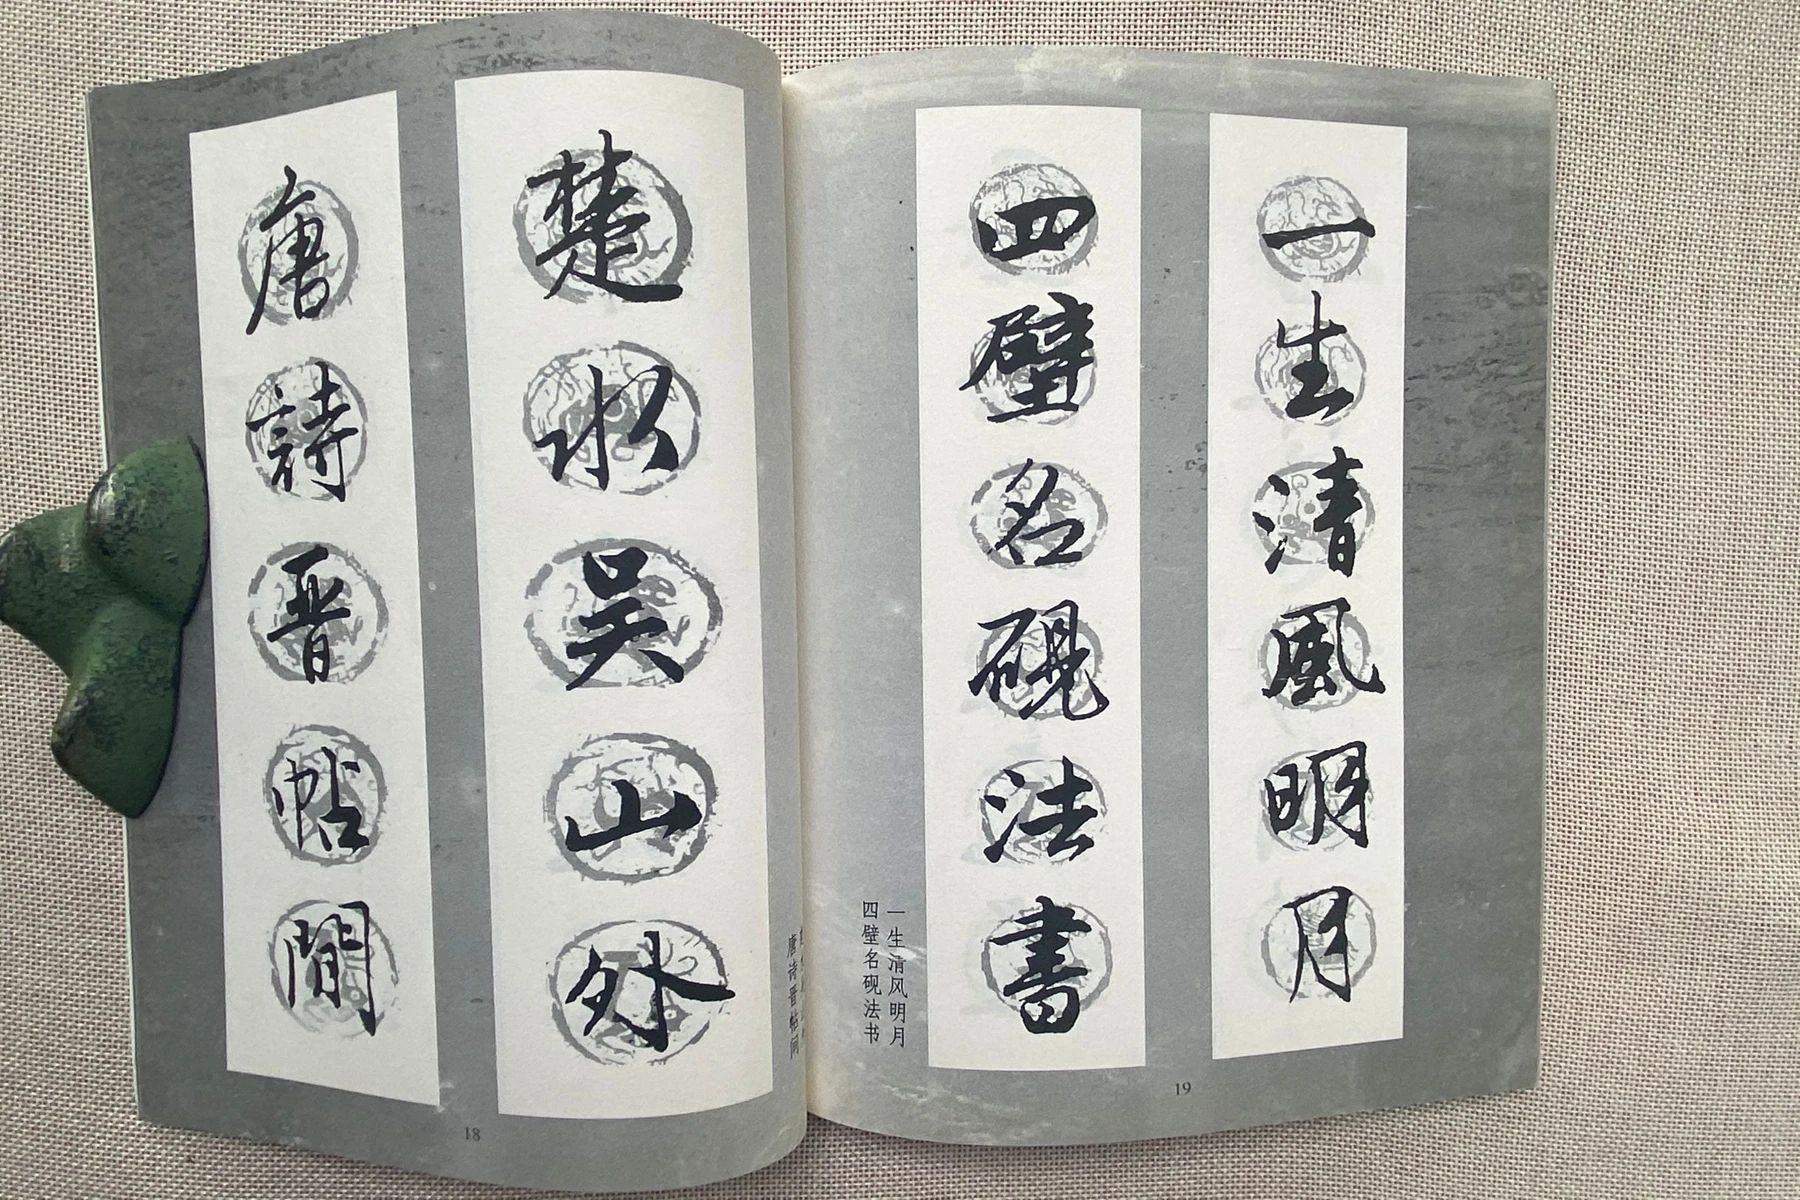 楚水吴山外
唐詩晋帖間
唐诗晋帖间
18
一生清風明月
四壁名硯法書
一生清风明月
四壁名砚法书
19